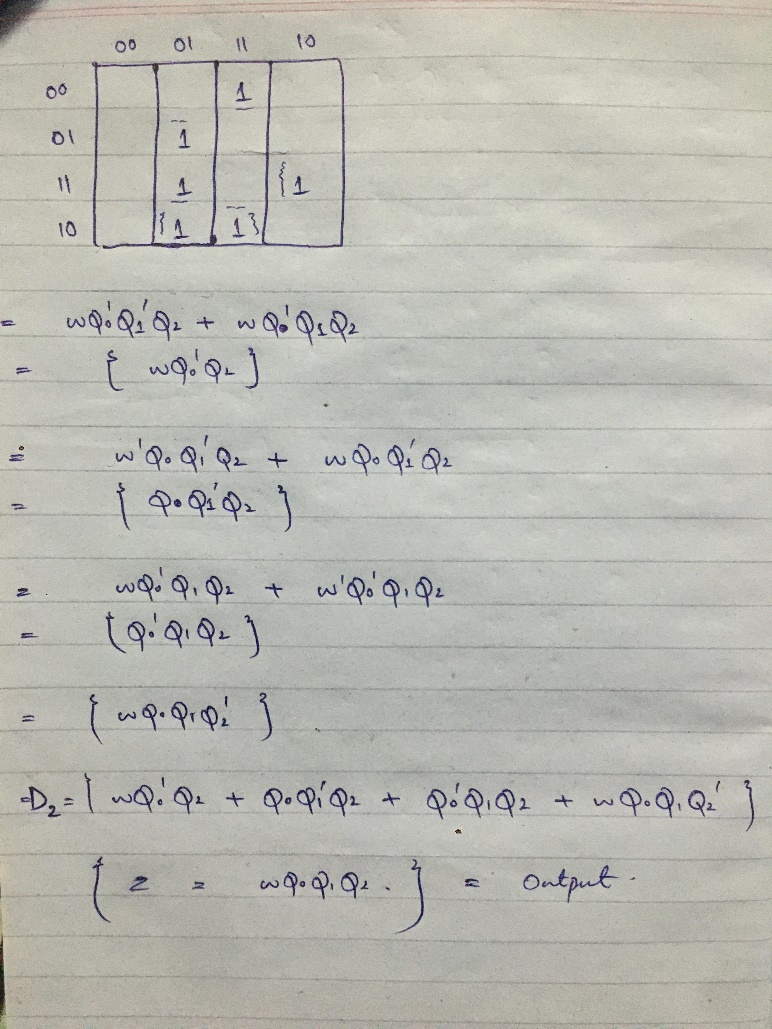 00 01 11 10
00 1
01 1
11 1 {1
10 {1 1}
= wQ₀'Q₁'Q₂ + wQ₀'Q₁Q₂
= { wQ₀'Q₂ }
= w'Q₀Q₁'Q₂ + wQ₀Q₁'Q₂
= { Q₀Q₁'Q₂ }
= wQ₀'Q₁Q₂ + w'Q₀'Q₁Q₂
= { Q₀'Q₁Q₂ }
= { wQ₀Q₁Q₂' }
=D₂= { wQ₀'Q₂ + Q₀Q₁'Q₂ + Q₀'Q₁Q₂ + wQ₀Q₁Q₂' }
{ z = wQ₀Q₁Q₂. } = Output.